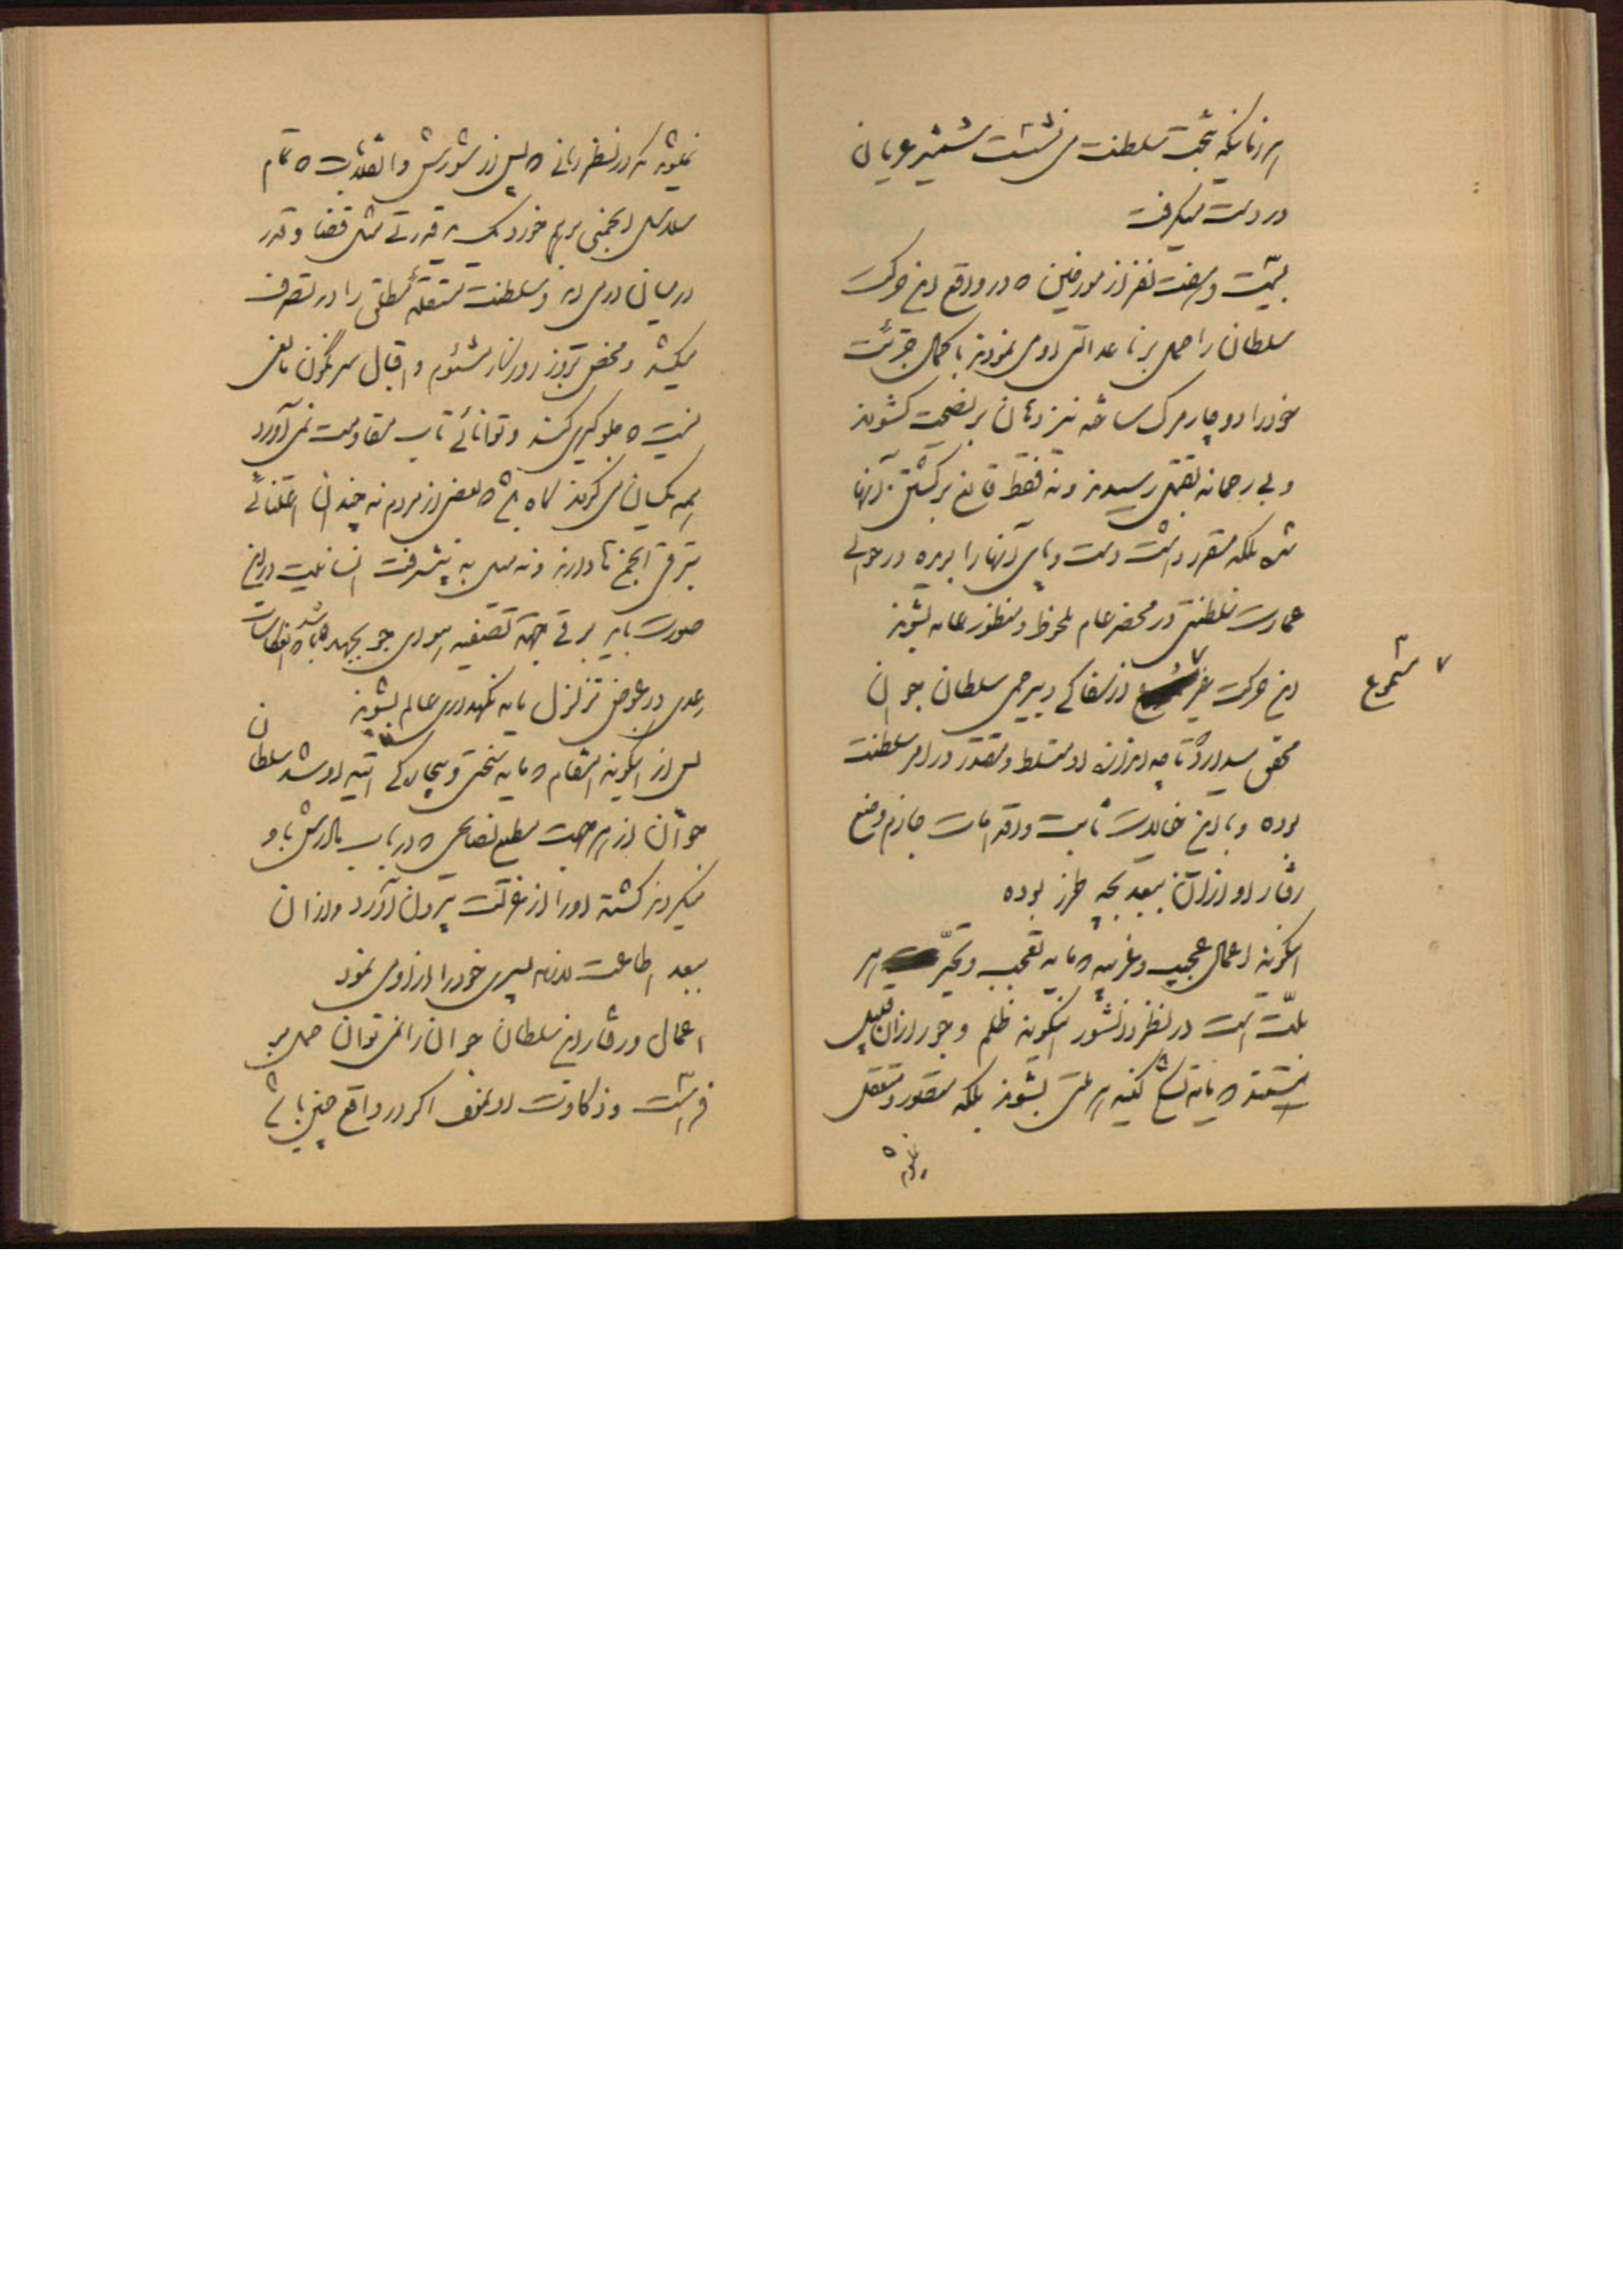 هر زمانیکه بتخت سلطنت می نشست شمشیر عریان
در دست میگرفت
بیست و هفت نفر از مورخین که در واقع این حرکت
سلطان را حمل بر ناعدالتی اوی نمودند با کمال جرئت
خود را دوچار مرک ساخته نیز دهان بر نصیحت کشودند
و بی رحمانه بقتل رسیدند و نه فقط قانع بر کشتن آنها
شده بلکه مقرر داشت دست و پای آنها را بریده در حوالی
عمارت سلطنتی در محضر عام ملحوظ و منظور عامه بشوند
این حرکت غیر از سفاکی و بیرحمی سلطان جوان
۷ مشروع
محقق میدارد تا چه اندازه او مسلط و مقتدر در امر سلطنت
بوده و با این خیالات ثابت و اقدامات جازم وضع
رفتار او از آن ببعد بچه طرز بوده
اینگونه اعمال عجیب و غریبه که مایه تعجب و تحیّر هر
ملّت است در نظر دانشور اینگونه ظلم و جور از آن قبیل
نیستند که مایه کنیه هر ملتی بشوند بلکه مقدور و متعقل
میشوند که در نظر ربانی که پس از شورش و انقلاب که تمام
سلاسل انجمنی بر هم خورد یک قدرتی مثل قضا و قدر
در میان درمی آید و سلطنت مستقلهٔ مطلقی را در تصرف
میکشد و محض بروز روزگار مشئوم و اقبال سرنگون مانعی
نیست که جلوگیری کند و توانائی تاب مقاومت نمی آورد
همه یکسان می گردند بعضی از مردم نه چندان اعتنائی
بترقی انجمن ها دارند و نه میل به پیشرفت انسانیت در این
صورت باید برقی جهة تصفیه هوای جو بجهد
رعدی در عوض تزلزل مایه نگهداری عالم بشوند
پس از اینگونه انتقام که مایه سختی و بیچارگی اتیه او شد سلطان
جوان از هر جهت مطیع نصایحی که در باب مادرش باو
میکردند کشته او را از عزلت بیرون آورد و از آن
ببعد اطاعت لازمه پسری خود را از او می نمود
اعمال و رفتار این سلطان جوان را نمی توان حمل بر
فراست و ذکاوت او نمود اگر در واقع چنین باشد